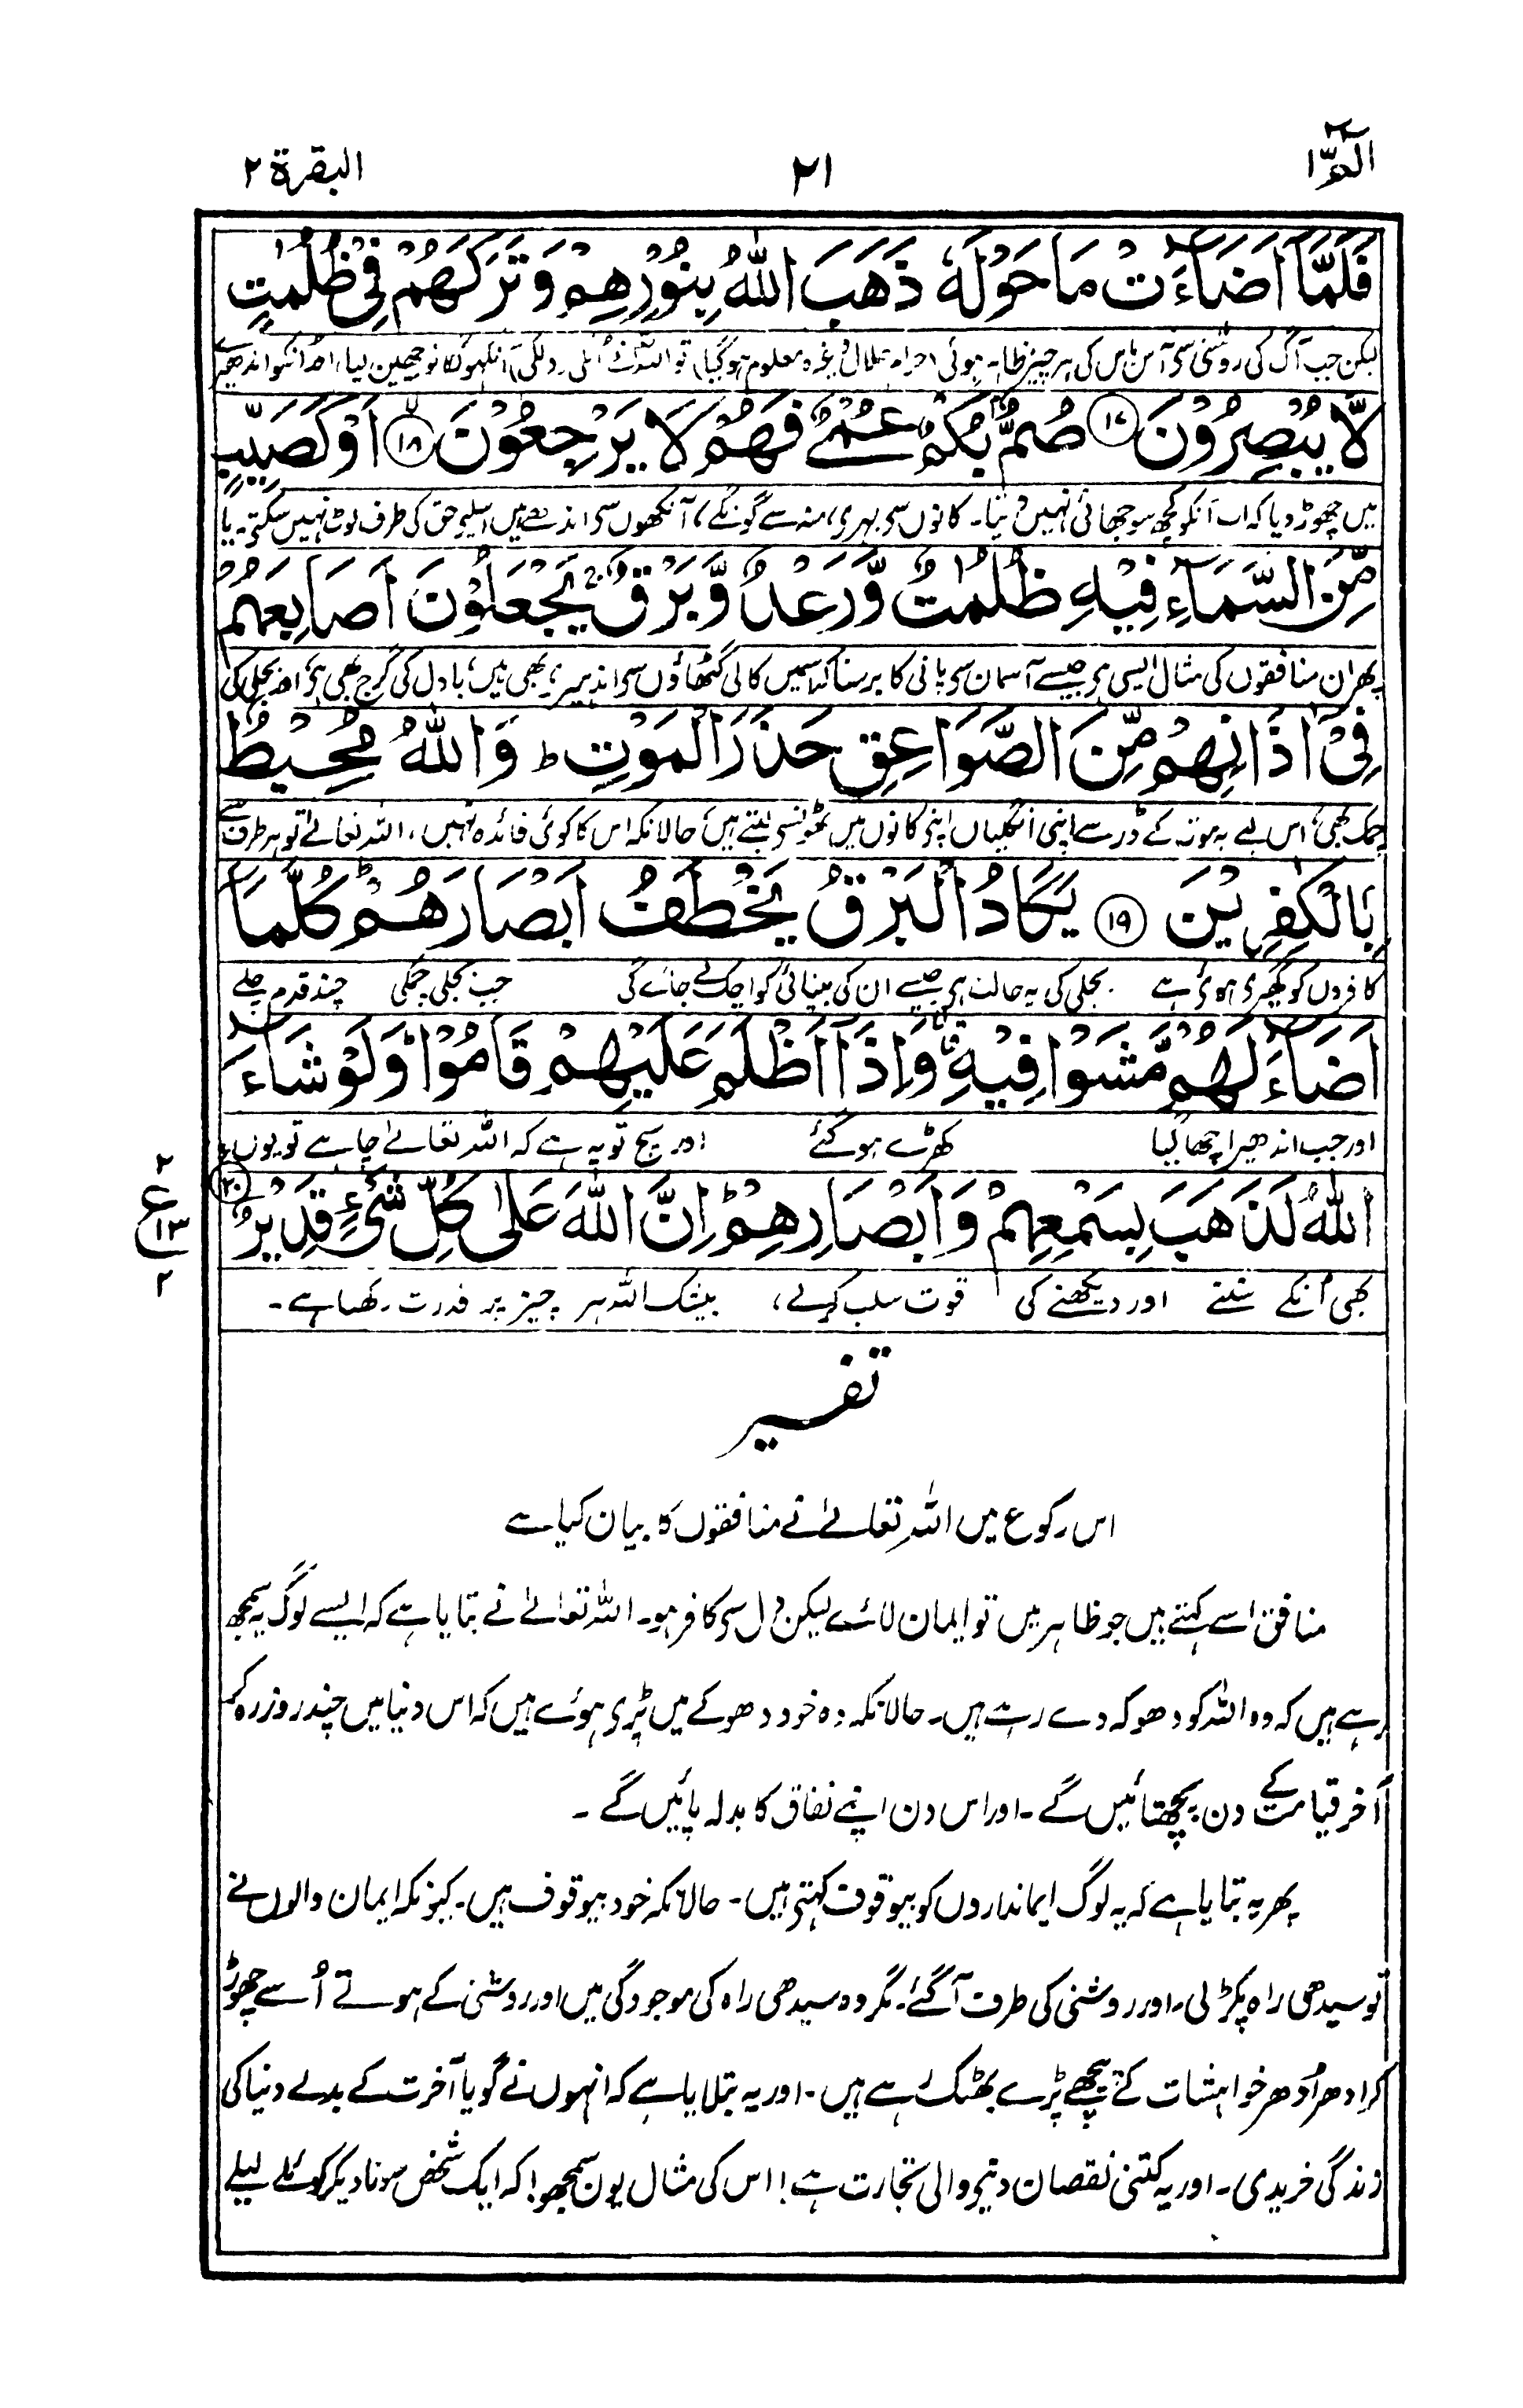 الٓمّٓ ۱
۲۱
البقرة ۲
فَلَمَّآ اَضَآءَتْ مَا حَوْلَهٗ ذَهَبَ اللّٰهُ بِنُوْرِهِمْ وَتَرَكَهُمْ فِيْ ظُلُمٰتٍ
لیکن جب آگ کی روشنی سی آس پاس کی ہر چیز ظاہر ہوئی معلوم ہوگیا) تو اللہ نے چھین لیا، انکو اندھیرے
لَّا يُبْصِرُوْنَ ۱۷ صُمٌّۢ بُكْمٌ عُمْيٌ فَهُمْ لَا يَرْجِعُوْنَ ۱۸ اَوْ كَصَيِّبٍ
میں چھوڑ دیا کہ اب انکو کچھ سوجھائی نہیں دیتا۔ کانوں سی بہری، منہ سے گونگے، آنکھوں سی اندھے ہیں اسلیے حق کی طرف لوٹ نہیں سکتے۔ یا
مِّنَ السَّمَآءِ فِيْهِ ظُلُمٰتٌ وَّرَعْدٌ وَّبَرْقٌ ۚ يَجْعَلُوْنَ اَصَابِعَهُمْ
پھر ان منافقوں کی مثال ایسی ہی جیسے آسمان سی پانی کا برسنا کہ اسمیں کالی گھٹاؤں سی اندھیرے بھی ہیں، بادل کی گرج بھی ہی اور بجلی کی
فِيْٓ اٰذَانِهِمْ مِّنَ الصَّوَاعِقِ حَذَرَ الْمَوْتِ ؕ وَاللّٰهُ مُحِيْطٌۢ
چمک بھی، اس لیے یہ موت کے ڈر سے اپنی انگلیاں اپنی کانوں میں ٹھونسی لیتے ہیں، حالانکہ اس کا کوئی فائدہ نہیں، اللہ تعالےٰ تو ہر طرف سے
بِالْكٰفِرِيْنَ ۱۹ يَكَادُ الْبَرْقُ يَخْطَفُ اَبْصَارَهُمْ ؕ كُلَّمَآ
کافروں کو گھیری ہوئی ہے بجلی کی یہ حالت ہی جیسے ان کی بینائی کو اچک لے جائے گی جب بجلی چمکی چند قدم چلے
اَضَآءَ لَهُمْ مَّشَوْا فِيْهِ ۙ وَاِذَآ اَظْلَمَ عَلَيْهِمْ قَامُوْا ؕ وَلَوْ شَآءَ
اور جب اندھیرا چھا گیا کھڑے ہو گئے اور سچ تو یہ ہے کہ اللہ تعالےٰ چاہے تو یوں
اللّٰهُ لَذَهَبَ بِسَمْعِهِمْ وَاَبْصَارِهِمْ ؕ اِنَّ اللّٰهَ عَلٰى كُلِّ شَيْءٍ قَدِيْرٌ ۲۰
۲
ع
۱۳
۲
بھی اُنکے سننے اور دیکھنے کی قوت سلب کرلے، بیشک اللہ ہر چیز پر قدرت رکھتا ہے۔
تفسیر
اس رکوع میں اللہ تعالےٰ نے منافقوں کا بیان کیا ہے
منافق اسے کہتے ہیں جو ظاہر میں تو ایمان لائے لیکن دل سی کافر ہو۔ اللہ تعالےٰ نے بتایا ہے کہ ایسے لوگ یہ سمجھ
رہے ہیں کہ وہ اللہ کو دھوکہ دے رہے ہیں۔ حالانکہ وہ خود دھوکے میں پڑی ہوئے ہیں کہ اس دنیا میں چند روز رہ کر
آخر قیامت کے دن پچھتائیں گے۔ اور اس دن اپنے نفاق کا بدلہ پائیں گے۔
پھر یہ بتایا ہے کہ یہ لوگ ایمانداروں کو بیوقوف کہتی ہیں۔ حالانکہ خود بیوقوف ہیں۔ کیونکہ ایمان والوں نے
تو سیدھی راہ پکڑ لی۔ اور روشنی کی طرف آگئے۔ مگر وہ سیدھی راہ کی موجودگی میں اور روشنی کے ہوتے اُسے چھوڑ
کر ادھر اُدھر خواہشات کے پیچھے پڑے بھٹک رہے ہیں۔ اور یہ بتلایا ہے کہ انہوں نے گویا آخرت کے بدلے دنیا کی
زندگی خریدی۔ اور یہ کتنی نقصان دینے والی تجارت ہے! اس کی مثال یوں سمجھو! کہ ایک شخص سونا دیکر کوئلے لیلے